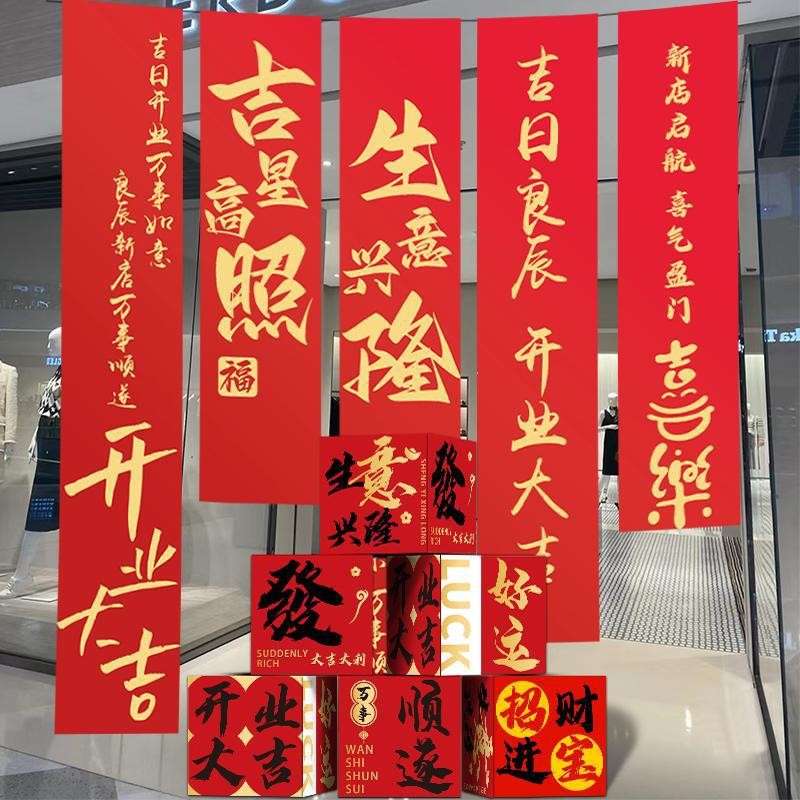 吉日开业万事如意
良辰新店万事顺遂
开业大吉
吉星高照
福
生意兴隆
吉日良辰 开业大吉
新店启航 喜气盈门
喜樂
生意
兴隆
SHENG YI XING LONG
發
大吉大利
發
SUDDENLY
RICH
大吉大利
开业
大吉
LUCK
好运
开业
大吉
LUCK
好运
万事
顺遂
WAN
SHI
SHUN
SUI
招财
进宝